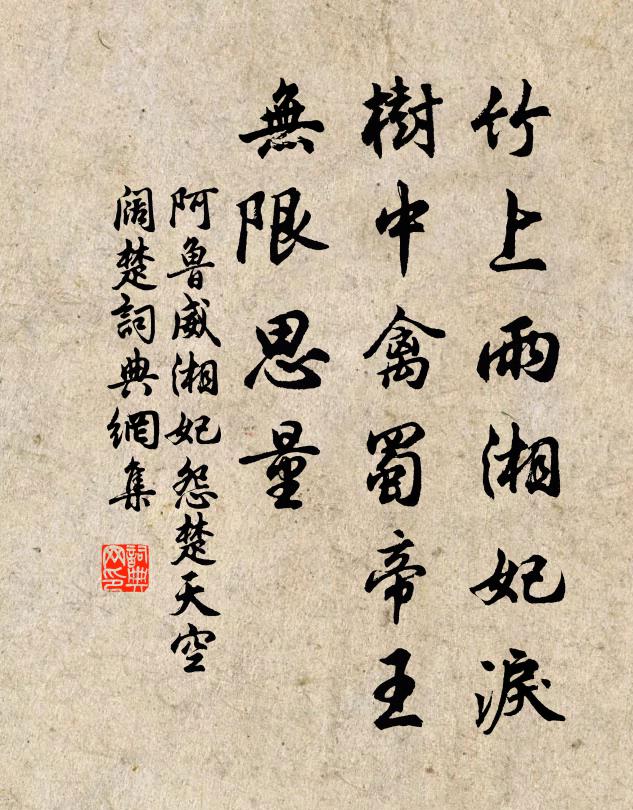 竹上雨湘妃淚
樹中禽蜀帝王
無限思量
阿魯威湘妃怨楚天空
阔楚詞典網集
詞典
网印